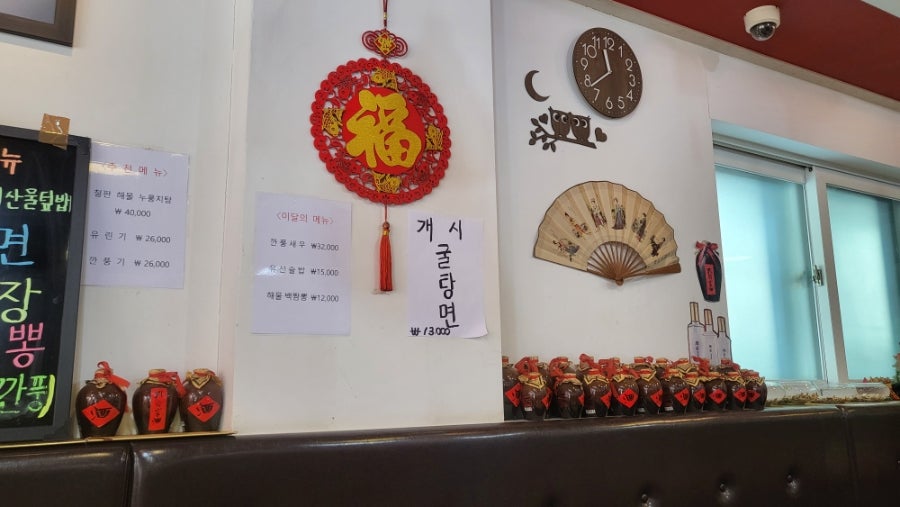 뉴
산울덮밥
면
장
뽕
깐풍
<추천메뉴>
철판 해물 누룽지탕
₩ 40,000
유린기 ₩ 26,000
깐풍기 ₩ 26,000
福
<이달의 메뉴>
깐풍새우 ₩32,000
유선솥밥 ₩15,000
해물 백짬뽕 ₩12,000
개시
굴탕면
₩ 13,000
11 12 1
10 2
9 3
8 4
7 6 5